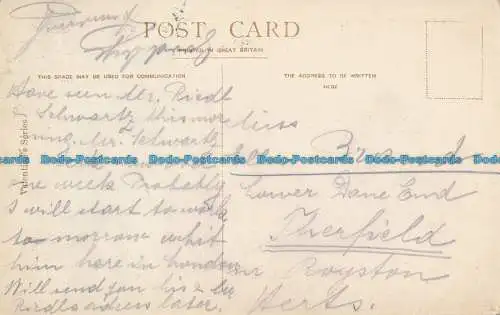 POST CARD
PRINTED IN GREAT BRITAIN
THIS SPACE MAY BE USED FOR COMMUNICATION
THE ADDRESS TO BE WRITTEN
HERE
Valentine's Series
Have seen Mr. Riedl
Schwartz this mor
ning. Mr. Schwartz
one week Probably
I will start to work
to-morrow whit
him here in london
Will send you his &
Riedls adress later.
Miss
Brand
Lower Dane End
Therfield
nr Royston
Herts.
Dodo-Postcards Dodo-Postcards Dodo-Postcards Dodo-Postcards Dodo-Postcards